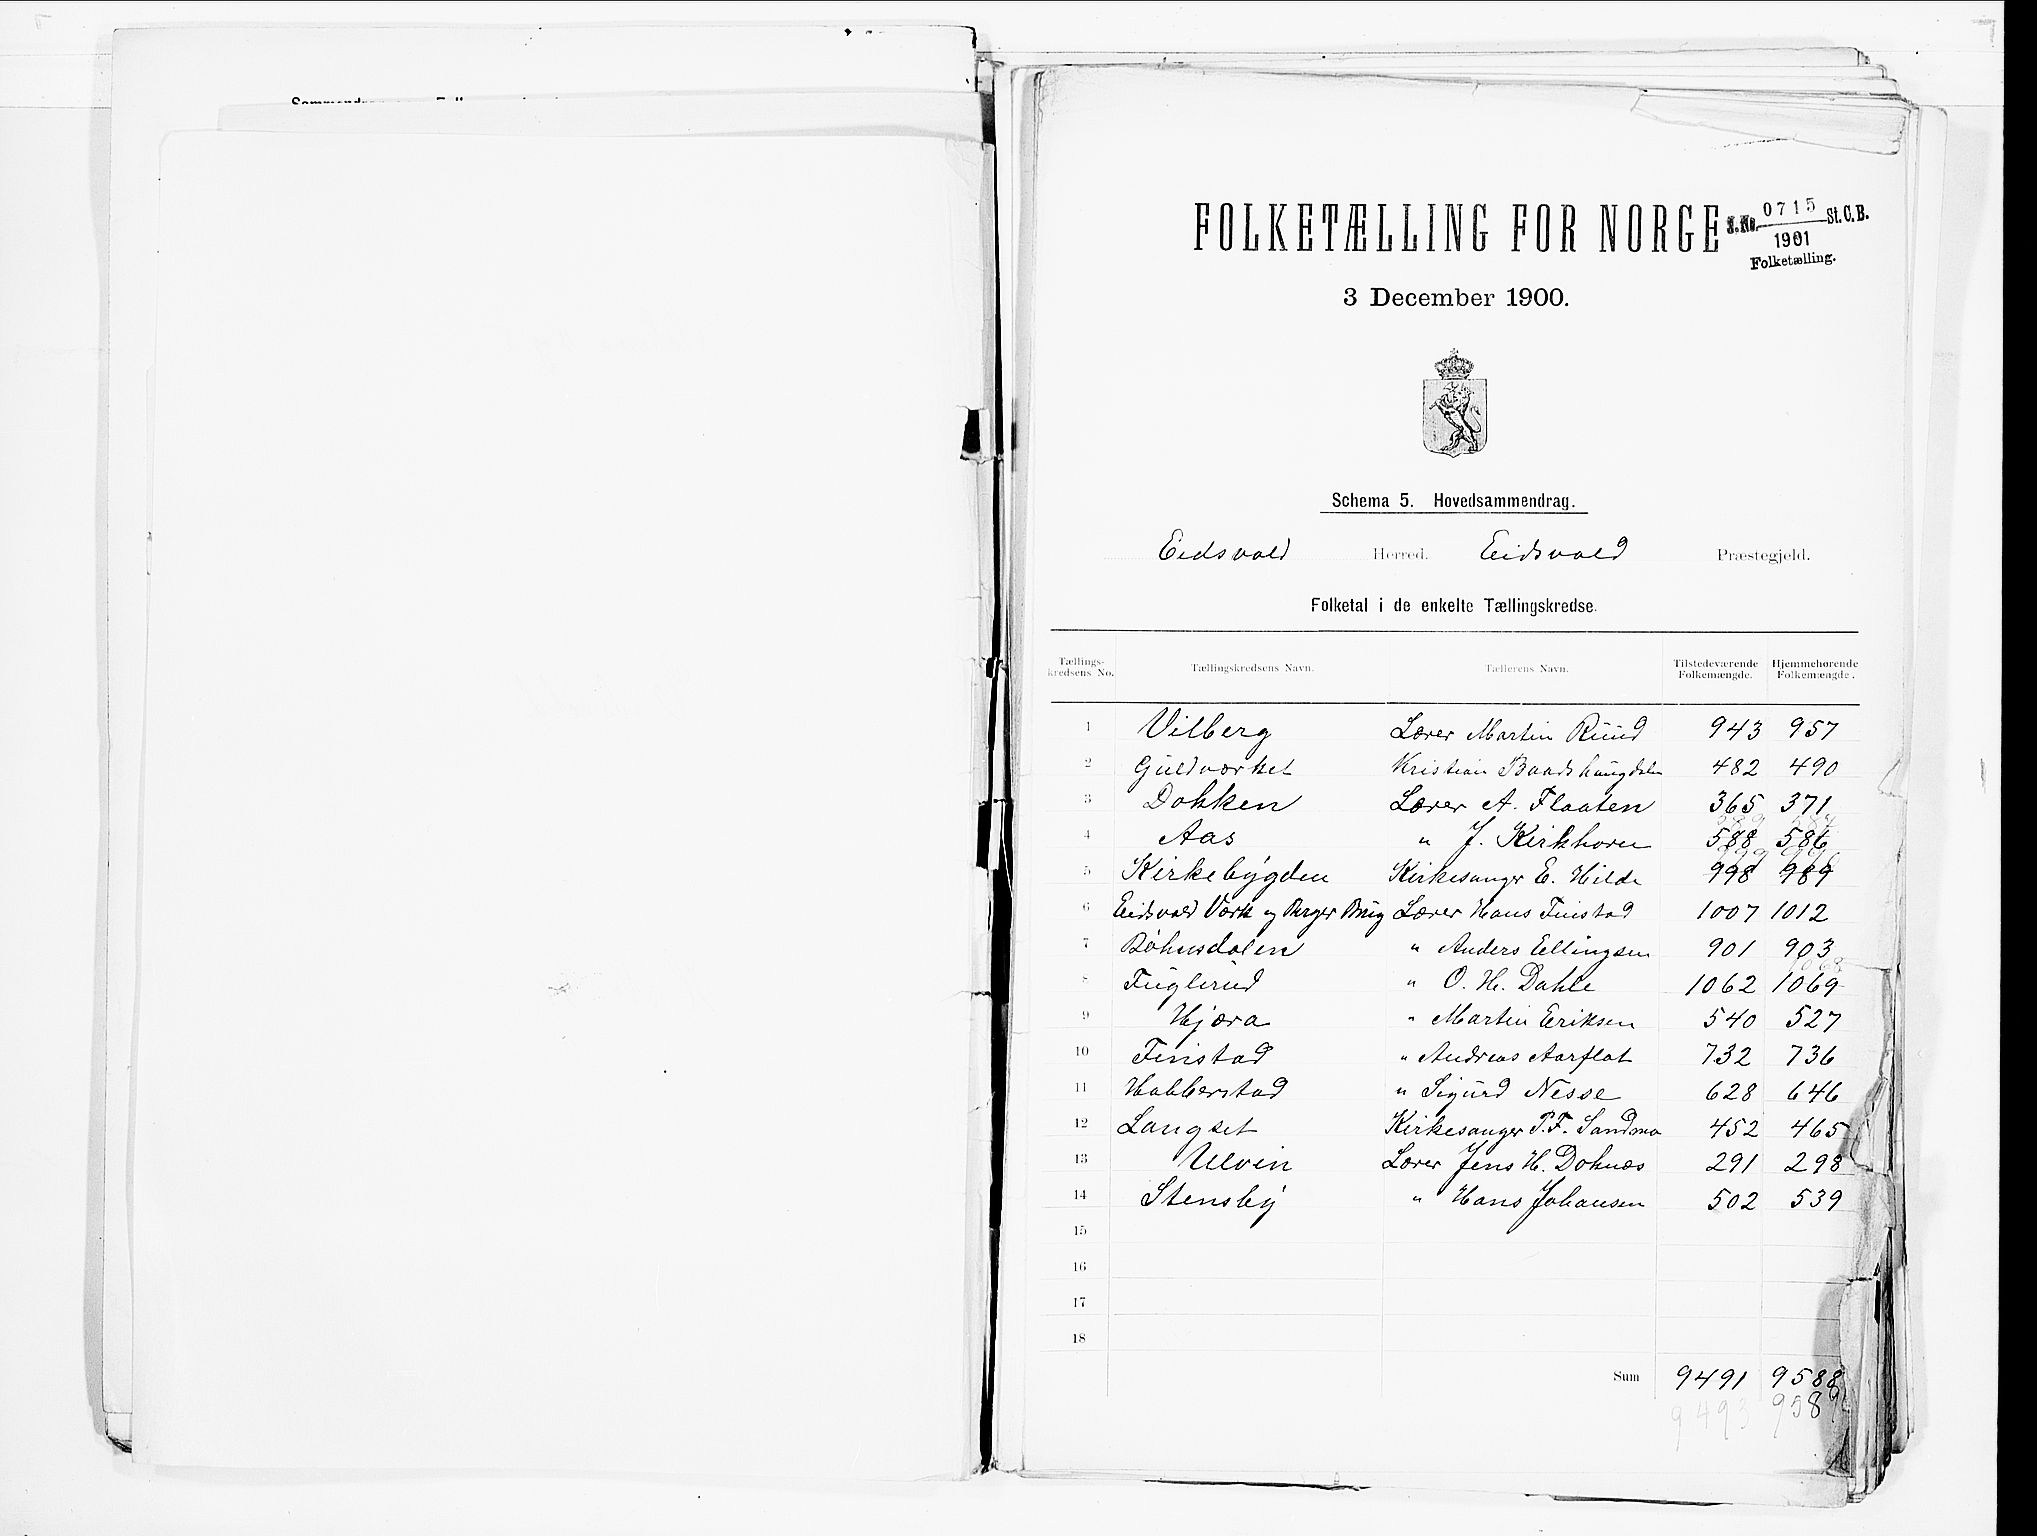 FOLKETÆLLING FOR NORGE
J.No. 0715 St.C.B.
1901
Folketælling.
3 December 1900.
Schema 5. Hovedsammendrag.
Eidsvold Herred. Eidsvold Præstegjeld.
Folketal i de enkelte Tællingskredse.
Tællings-kredsens No. Tællingskredsens Navn. Tællerens Navn. Tilstedeværende Folkemængde. Hjemmehørende Folkemængde.
1 Vilberg Lærer Martin Ruud 943 957
2 Guldværket Kristian Baadshaugdalen 482 490
3 Dokken Lærer A. Flaaten 365 371
589 587
4 Aas " J. Kirkhorn 588 586
999
5 Kirkebygden Kirkesanger E. Hilde 998 989
6 Eidsvold Værk og Berger Brug Lærer Hans Finstad 1007 1012
7 Bøhnsdalen " Anders Ellingsen 901 903
1068
8 Fuglerud " O. H. Dahle 1062 1069
9 Hjæra " Martin Eriksen 540 527
10 Finstad " Andreas Aarflot 732 736
11 Habberstad " Sigurd Nesse 628 646
12 Langset Kirkesanger P. F. Sandmo 452 465
13 Ulvin Lærer Jens H. Doknæs 291 298
14 Stensby " Hans Johansen 502 539
15
16
17
18
Sum 9491 9588
9493 9589